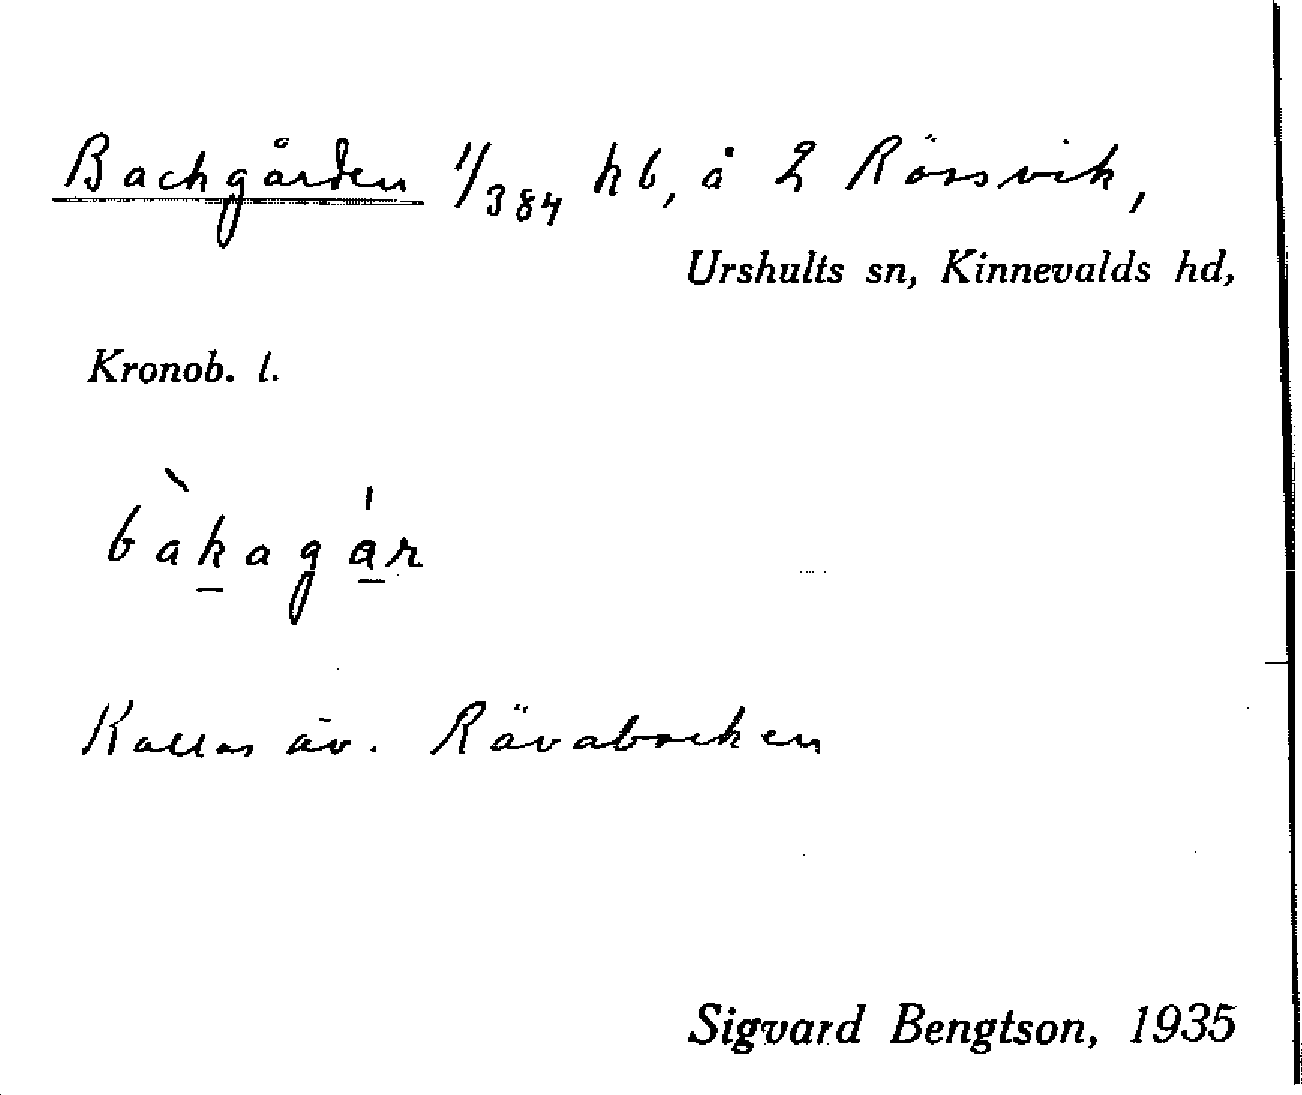 Backgården 11/384 hb, å 2 Rössvik,
Urshults sn, Kinnevalds hd,
Kronob. l.
bàkagár
Kallas äv. Rävabacken
Sigvard Bengtson, 1935